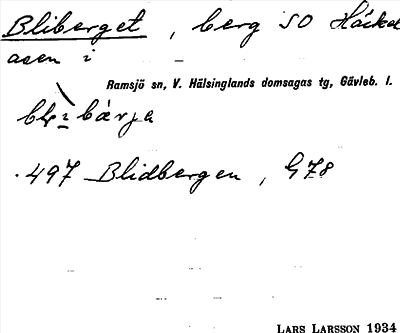 Bliberget, berg SO Häckel
åsen i
Ramsjö sn, V. Hälsinglands domsagas tg, Gävleb. l.
497 Blidbergen, G78
LARS LARSSON 1934